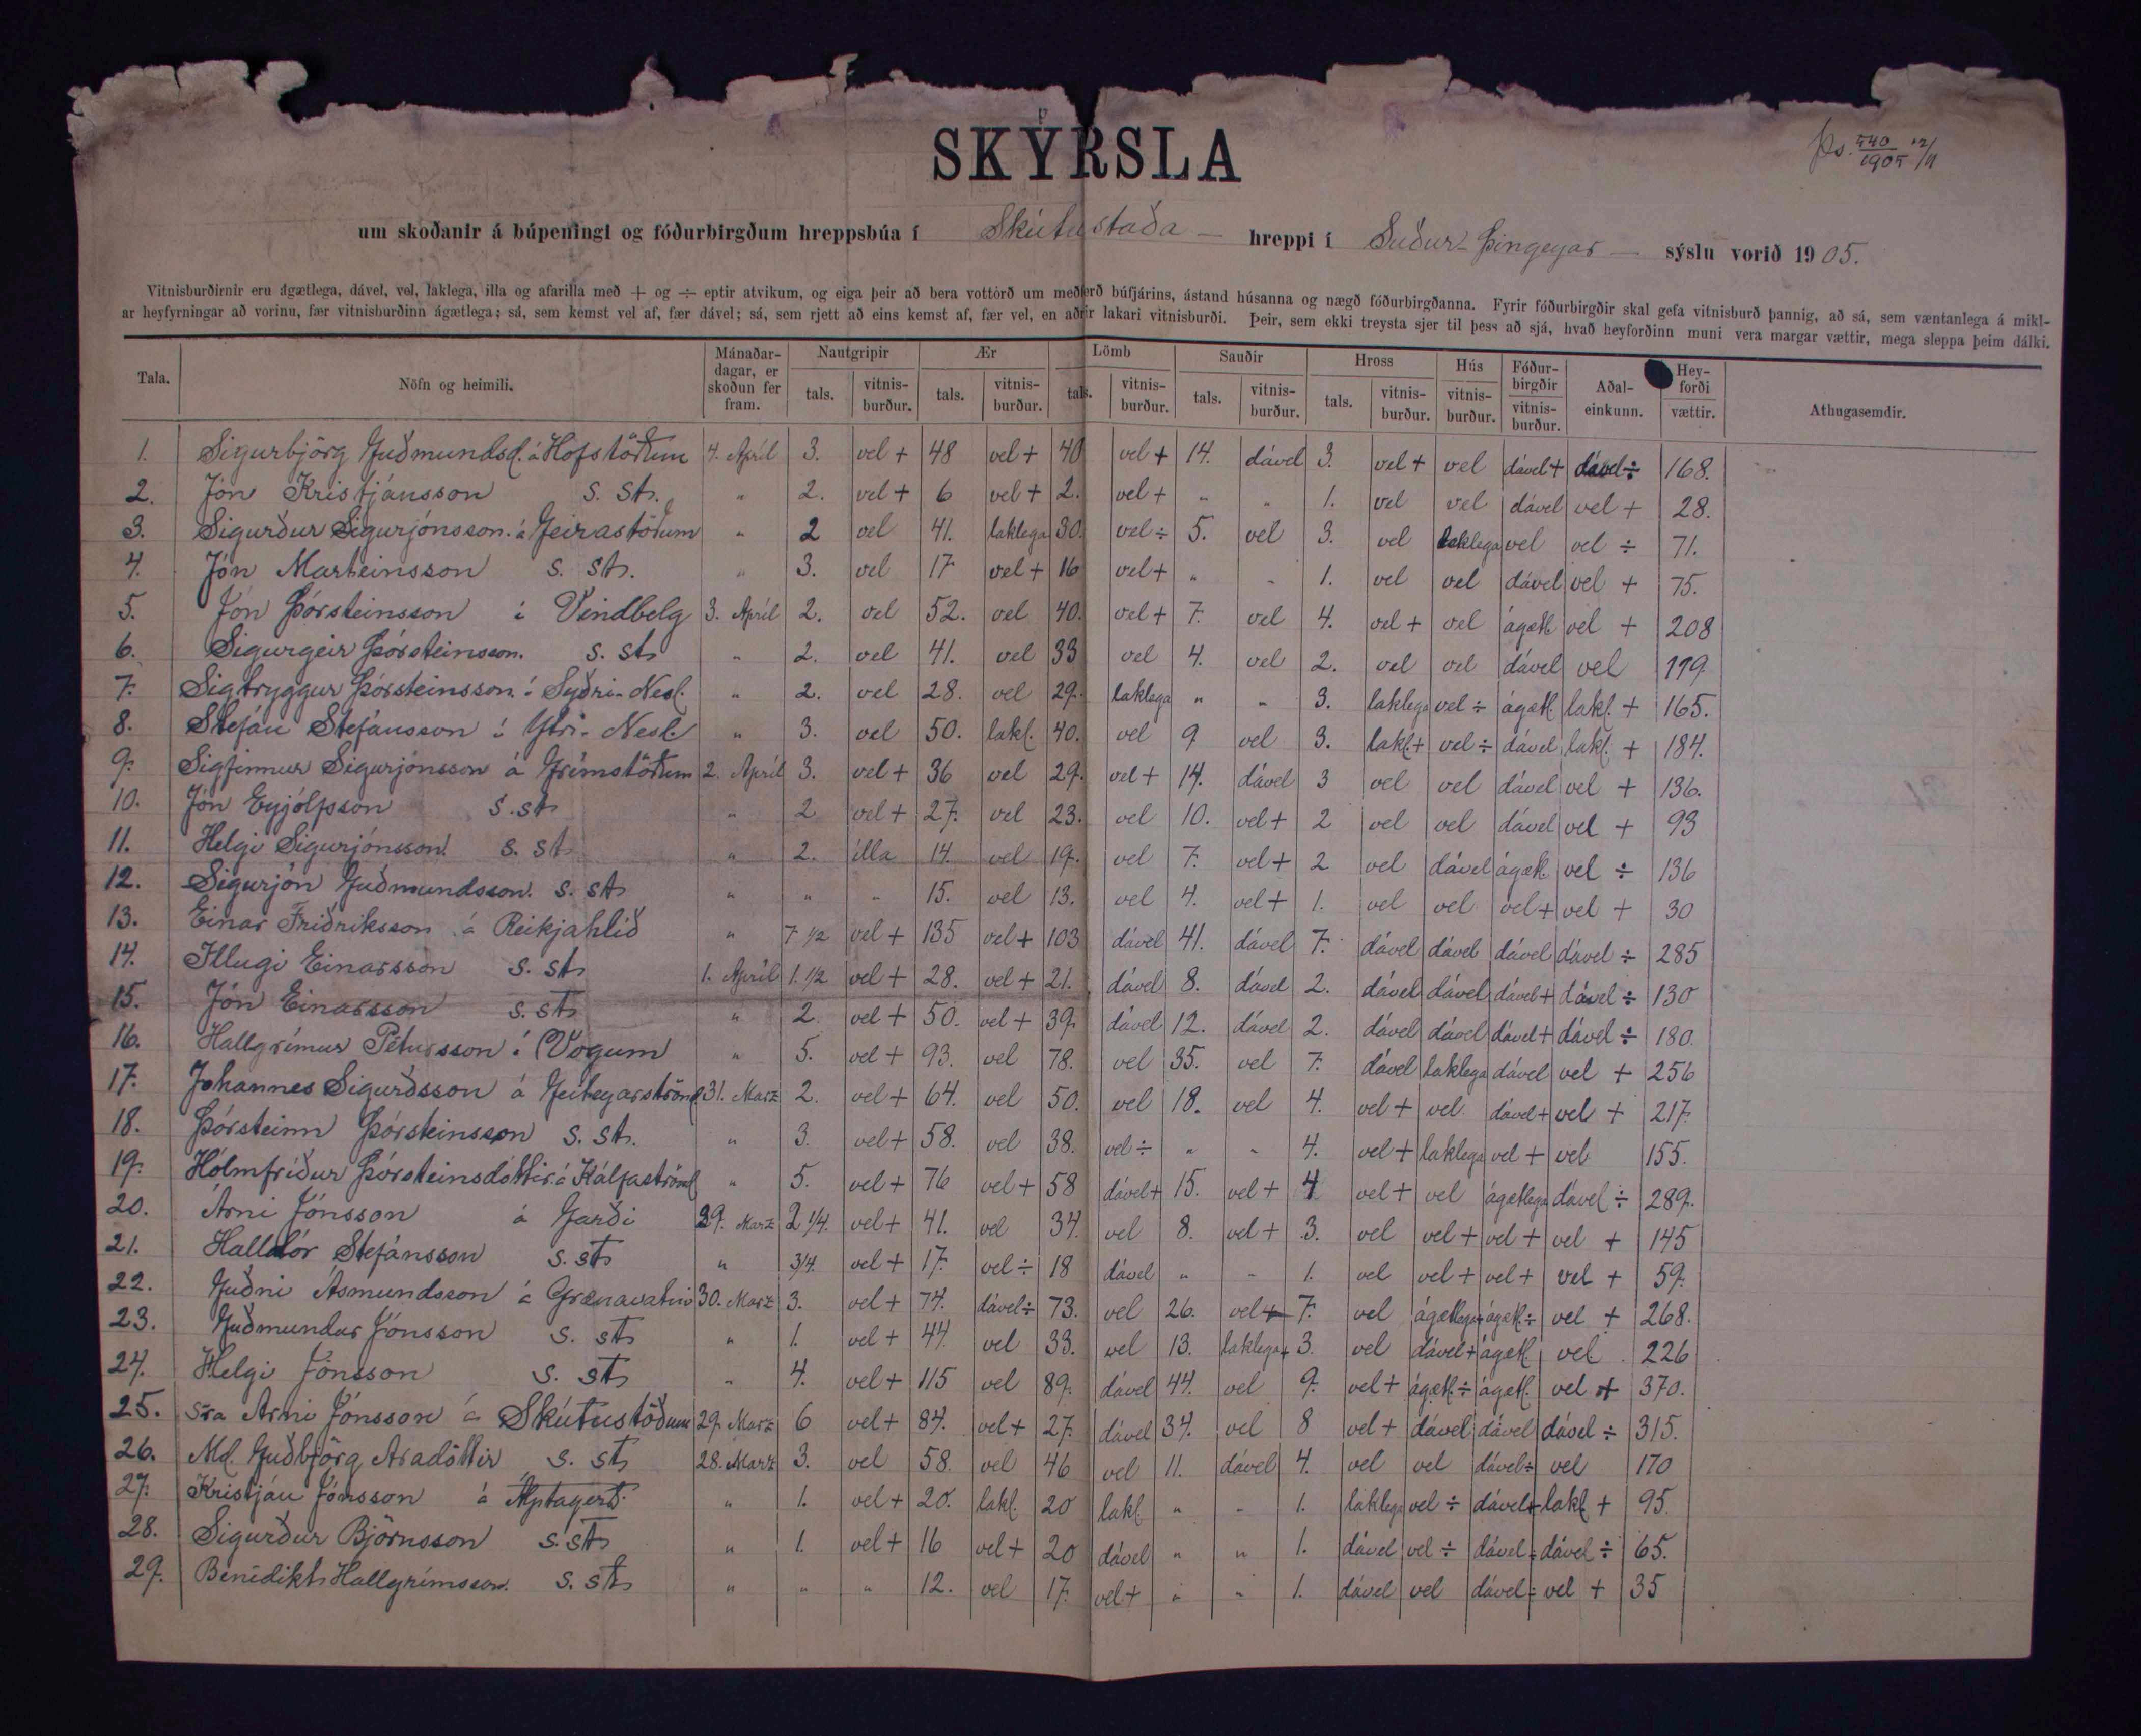 Þs. 540/1905 12/11
SKÝRSLA
um skoðanir á búpeningi og fóðurbirgðum hreppsbúa í Skútustaða - hreppi í Suður-Þingeyar - sýslu vorið 1905.
Vitnisburðirnir eru ágætlega, dável, vel, laklega, illa og afarilla með + og ÷ eptir atvikum, og eiga þeir að bera vottorð um meðferð búfjárins, ástand húsanna og nægð fóðurbirgðanna. Fyrir fóðurbirgðir skal gefa vitnisburð þannig, að sá, sem væntanlega á mikl-
ar heyfyrningar að vorinu, fær vitnisburðinn ágætlega; sá, sem kemst vel af, fær dável; sá, sem rjett að eins kemst af, fær vel, en aðrir lakari vitnisburði. Þeir, sem ekki treysta sjer til þess að sjá, hvað heyforðinn muni vera margar vættir, mega sleppa þeim dálki.
Tala. Nöfn og heimili. Mánaðar-dagar, er skoðun fer fram. Nautgripir Ær Lömb Sauðir Hross Hús Fóður-birgðir Aðal-einkunn. Hey-forði Athugasemdir.
tals. vitnis-burður. tals. vitnis-burður. tals. vitnis-burður. tals. vitnis-burður. tals. vitnis-burður. vitnis-burður. vitnis-burður. vættir.
1. Sigurbjörg Guðmundsd. á Hofstöðum 4. Apríl 3. vel + 48 vel + 40 vel + 14. dável 3. vel + vel dável + dável ÷ 168.
2. Jón Kristjánsson s. st. " 2. vel + 6 vel + 2. vel + " " 1. vel vel dável vel + 28.
3. Sigurður Sigurjónsson. á Geirastöðum " 2 vel 41. laklega 30. vel ÷ 5. vel 3. vel laklega vel vel ÷ 71.
4. Jón Marteinsson s. st. " 3. vel 17 vel + 16 vel + " " 1. vel vel dável vel + 75.
5. Jón Þórsteinsson í Vindbelg 3. Apríl 2. vel 52. vel 40. vel + 7. vel 4. vel + vel ágætl vel + 208
6. Sigurgeir Þórsteinsson. s. st " 2. vel 41. vel 33 vel 4. vel 2. vel vel dável vel 179.
7. Sigtryggur Þórsteinsson í Syðri-Nesl. " 2. vel 28. vel 29. laklega " " 3. laklega vel ÷ ágætl. lakl. + 165.
8. Stefán Stefánsson í Ytri-Nesl. " 3. vel 50. lakl. 40. vel 9 vel 3. lakl. + vel ÷ dável lakl. + 184.
9. Sigfinnur Sigurjónsson á Grímstöðum 2. Apríl 3. vel + 36 vel 29. vel + 14. dável 3 vel vel dável vel + 136.
10. Jón Eyjólfsson s. st " 2 vel + 27. vel 23. vel 10. vel + 2 vel vel dável vel + 93
11. Helgi Sigurjónsson s. st " 2. illa 14. vel 19. vel 7. vel + 2 vel dável ágætl. vel ÷ 136
12. Sigurjón Guðmundsson. s. st " " " 15. vel 13. vel 4. vel + 1. vel vel vel + vel + 30
13. Einar Friðriksson á Reikjahlíð " 7 1/2 vel + 135 vel + 103 dável 41. dável 7. dável dável dável dável ÷ 285
14. Illugi Einarsson s. st 1. Apríl 1. 1/2 vel + 28. vel + 21. dável 8. dável 2. dável dável dável + dável ÷ 130
15. Jón Einarsson s. st " 2 vel + 50. vel + 39. dável 12. dável 2. dável dável dável + dável ÷ 180.
16. Hallgrímur Pétursson í Vogum " 5. vel + 93. vel 78. vel 35. vel 7. dável laklega dável vel + 256
17. Jóhannes Sigurðsson á Geiteyarströnd 31. Marz 2. vel + 64. vel 50. vel 18. vel 4. vel + vel dável + vel + 217.
18. Þórsteinn Þórsteinsson s. st. " 3. vel + 58. vel 38. vel ÷ " " 4. vel + laklega vel + vel 155.
19. Hólmfríður Þórsteinsdóttir á Kálfaströnd " 5. vel + 76 vel + 58 dável + 15. vel + 4 vel + vel ágætlega dável ÷ 289.
20. Árni Jónsson á Garði 29. Marz 2 1/4. vel + 41. vel 34. vel 8. vel + 3. vel vel + vel + vel + 145
21. Halldór Stefánsson s. st " 3/4. vel + 17. vel ÷ 18 dável " " 1. vel vel + vel + vel + 59.
22. Guðni Ásmundsson á Grænavatni 30. Marz 3. vel + 74. dável ÷ 73. vel 26. vel + 7. vel ágætlega ÷ ágætl. ÷ vel + 268.
23. Guðmundur Jónsson s. st " 1. vel + 44. vel 33. vel 13. laklega + 3. vel dável + ágætl. vel 226
24. Helgi Jónsson s. st " 4. vel + 115 vel 89. dável 44. vel 9. vel + ágætl. ÷ ágætl. vel + 370.
25. Sra Árni Jónsson á Skútustöðum 29. Marz 6 vel + 84. vel + 27. dável 34. vel 8 vel + dável dável dável ÷ 315.
26. Md. Guðbjörg Aradóttir s. st 28. Marz 3. vel 58. vel 46 vel 11. dável 4. vel vel dável ÷ vel 170
27. Kristján Jónsson á Álptagerð. " 1. vel + 20. lakl. 20 lakl. " " 1. laklega vel ÷ dável + lakl + 95.
28. Sigurður Björnsson s. st " 1. vel + 16 vel + 20 dável " " 1. dável vel ÷ dável ÷ dável ÷ 65.
29. Benedikt Hallgrímsson. s. st " " " 12. vel 17. vel + " " 1. dável vel dável ÷ vel + 35